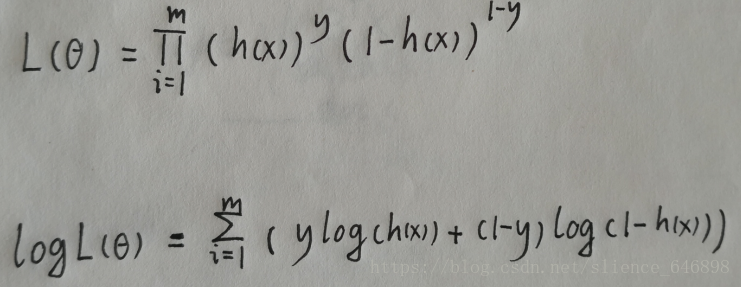 L(θ) = ∏_{i=1}^{m} (h(x))^y (1-h(x))^{1-y}
log L(θ) = ∑_{i=1}^{m} (y log(h(x)) + (1-y) log(1-h(x)))
https://blog.csdn.net/slience_646898